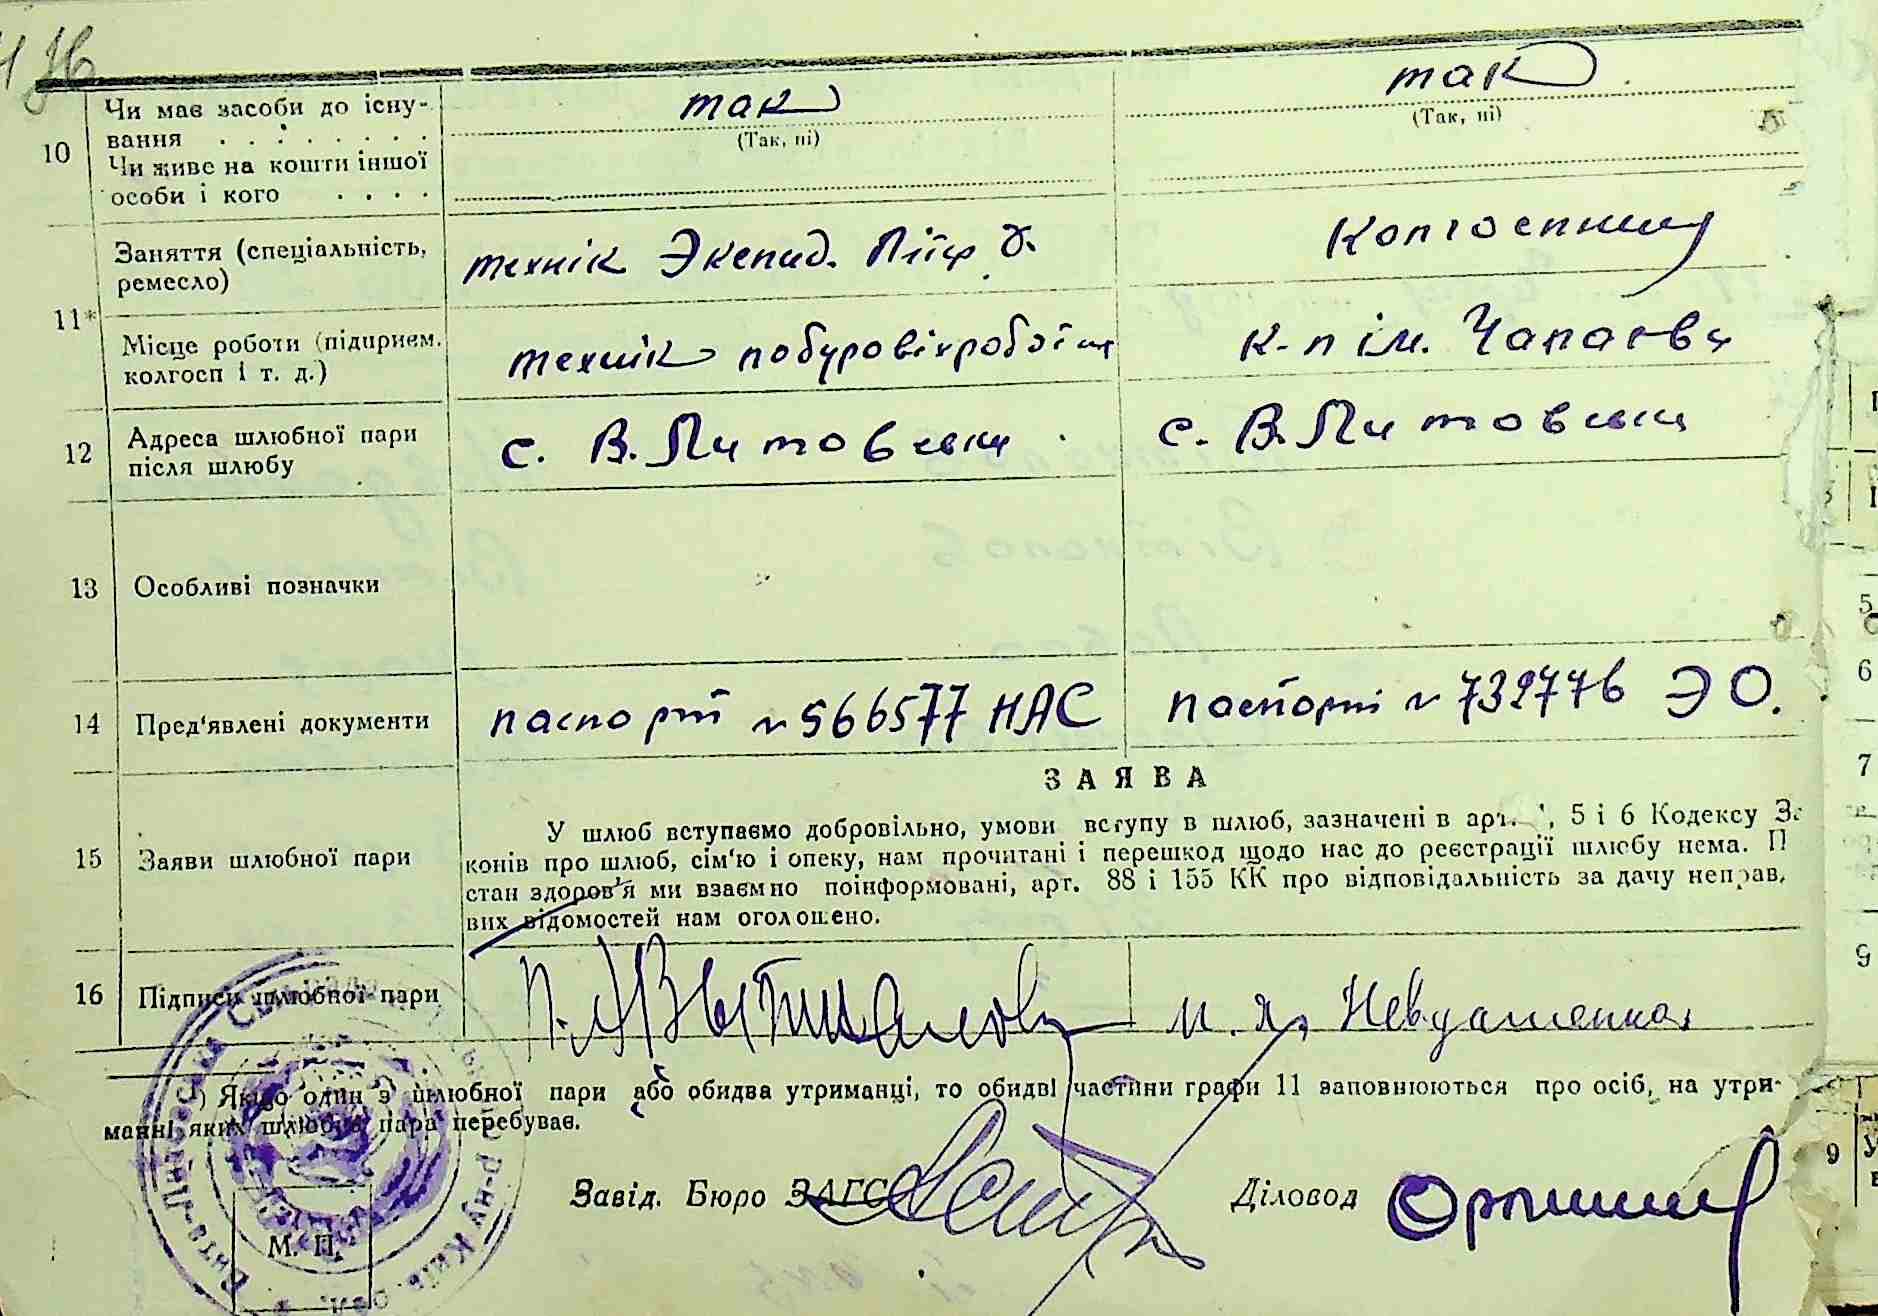 10
Чи має засоби до існу-
вання . . . . . . .
так
(Так, ні)
так
(Так, ні)
Чи живе на кошти іншої
особи і кого . . . .
11*
Заняття (спеціальність,
ремесло)
технік Экспид.
Колгоспниця
Місце роботи (підприєм.
колгосп і т. д.)
технік
к-п ім. Чапаєва
12
Адреса шлюбної пари
після шлюбу
с. В. Литовська
с. В. Литовська
13
Особливі позначки
14
Пред'явлені документи
паспорт № 566577 НАС
паспорт № 739776 ЭО.
15
Заяви шлюбної пари
ЗАЯВА
У шлюб вступаємо добровільно, умови вступу в шлюб, зазначені в арт. , 5 і 6 Кодексу За
конів про шлюб, сім'ю і опеку, нам прочитані і перешкод щодо нас до реєстрації шлюбу нема. П
стан здоров'я ми взаємно поінформовані, арт. 88 і 155 КК про відповідальність за дачу неправ,
вих відомостей нам оголошено.
16
Підписи шлюбної пари
*) Якщо один з шлюбної пари або обидва утриманці, то обидві частини графи 11 заповнюються про осіб, на утри-
манні яких шлюбна пара перебуває.
Завід. Бюро ЗАГС
Діловод
М. П.
5
6
7
9
9